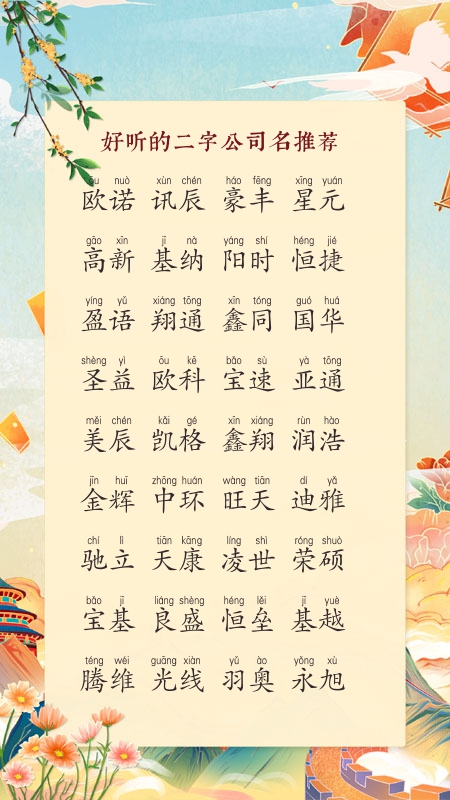 好听的二字公司名推荐
ōu nuò xùn chén háo fēng xīng yuán
欧诺 讯辰 豪丰 星元
gāo xīn jī nà yáng shí héng jié
高新 基纳 阳时 恒捷
yíng yǔ xiáng tōng xīn tóng guó huá
盈语 翔通 鑫同 国华
shèng yì ōu kē bǎo sù yà tōng
圣益 欧科 宝速 亚通
měi chén kǎi gé xīn xiáng rùn hào
美辰 凯格 鑫翔 润浩
jīn huī zhōng huán wàng tiān dí yǎ
金辉 中环 旺天 迪雅
chí lì tiān kāng líng shì róng shuò
驰立 天康 凌世 荣硕
bǎo jī liáng shèng héng lěi jī yuè
宝基 良盛 恒垒 基越
téng wéi guāng xiàn yǔ ào yǒng xù
腾维 光线 羽奥 永旭